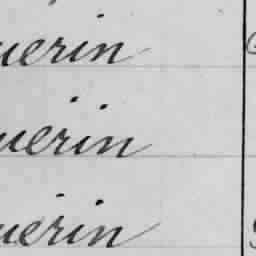 uerin
uerin
uerin